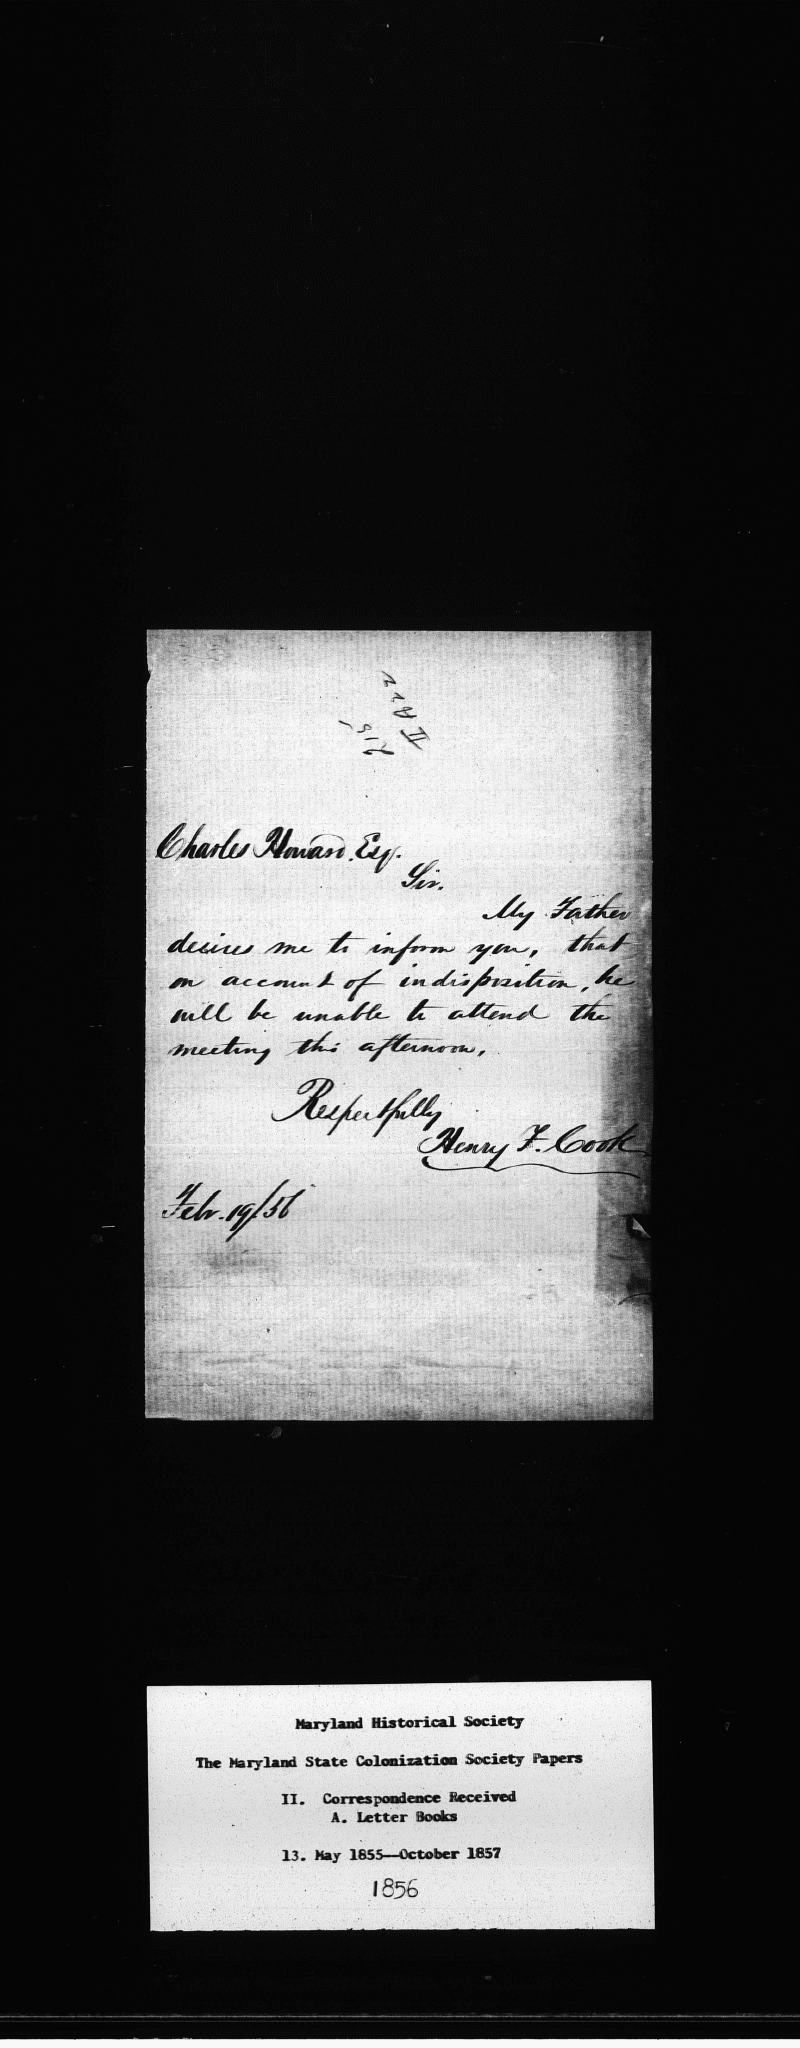 II A 22
Charles Howard, Esq.
Sir.
My Father
desires me to inform you, that
on account of indisposition, he
will be unable to attend the
meeting this afternoon.
Respectfully
Henry F. Cook
Febr. 19/56
Maryland Historical Society
The Maryland State Colonization Society Papers
II. Correspondence Received
A. Letter Books
13. May 1855--October 1857
1856